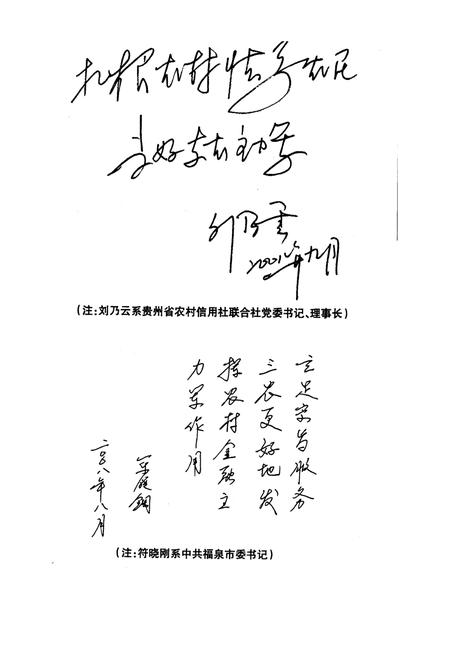 扎根农村 情系农民
当好支农主力军
刘乃云
2008年九月
(注:刘乃云系贵州省农村信用社联合社党委书记、理事长)
立足宗旨服务
三农更好地发
挥农村金融主
力军作用
符晓刚
二00八年八月
(注:符晓刚系中共福泉市委书记)